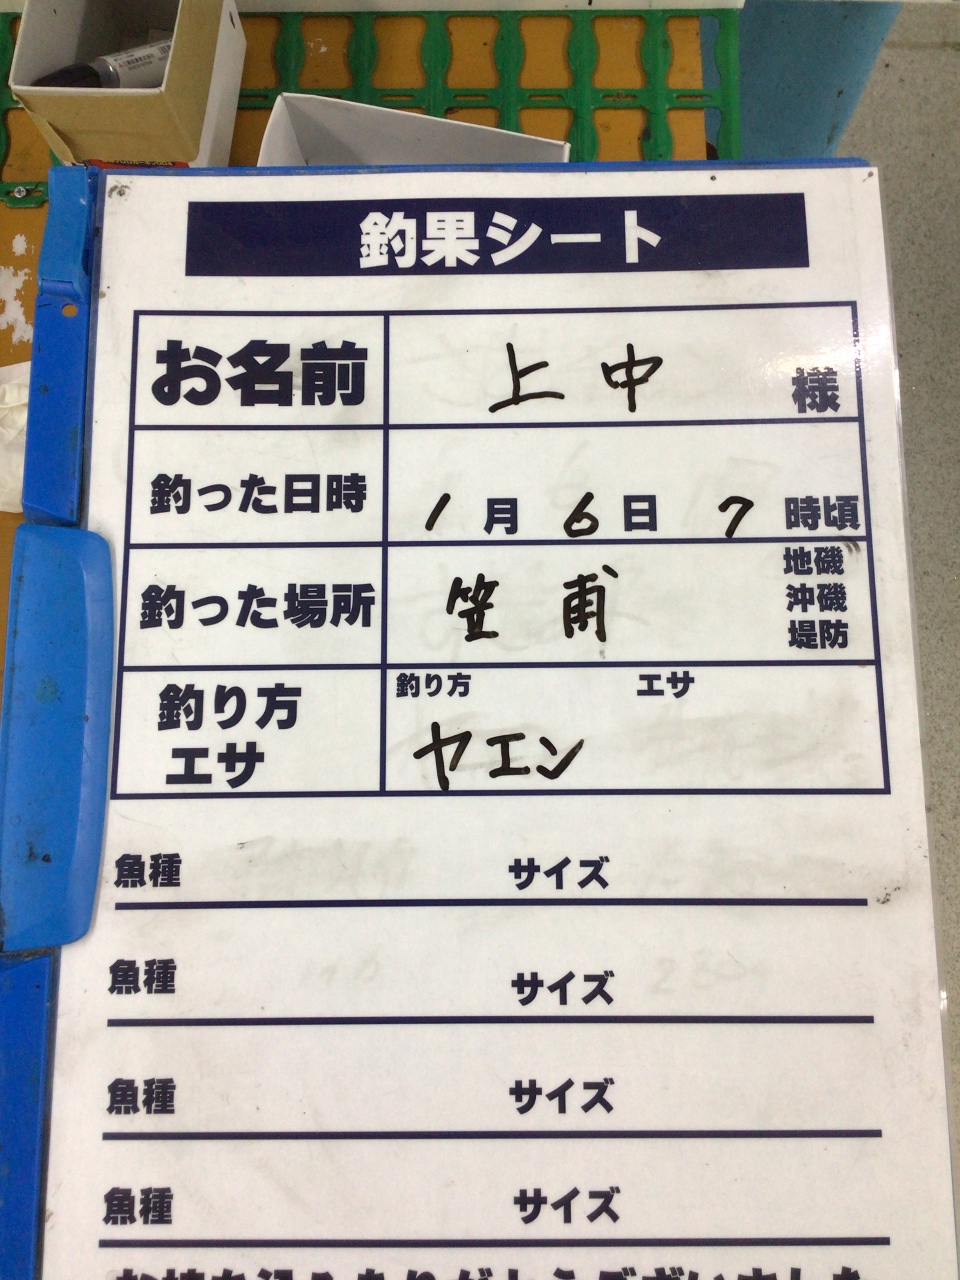 釣果シート
お名前 上中 様
釣った日時 1月6日 7時頃
釣った場所 笠甫 地磯
沖磯
堤防
釣り方 釣り方 エサ
エサ ヤエン
魚種 サイズ
魚種 サイズ
魚種 サイズ
魚種 サイズ